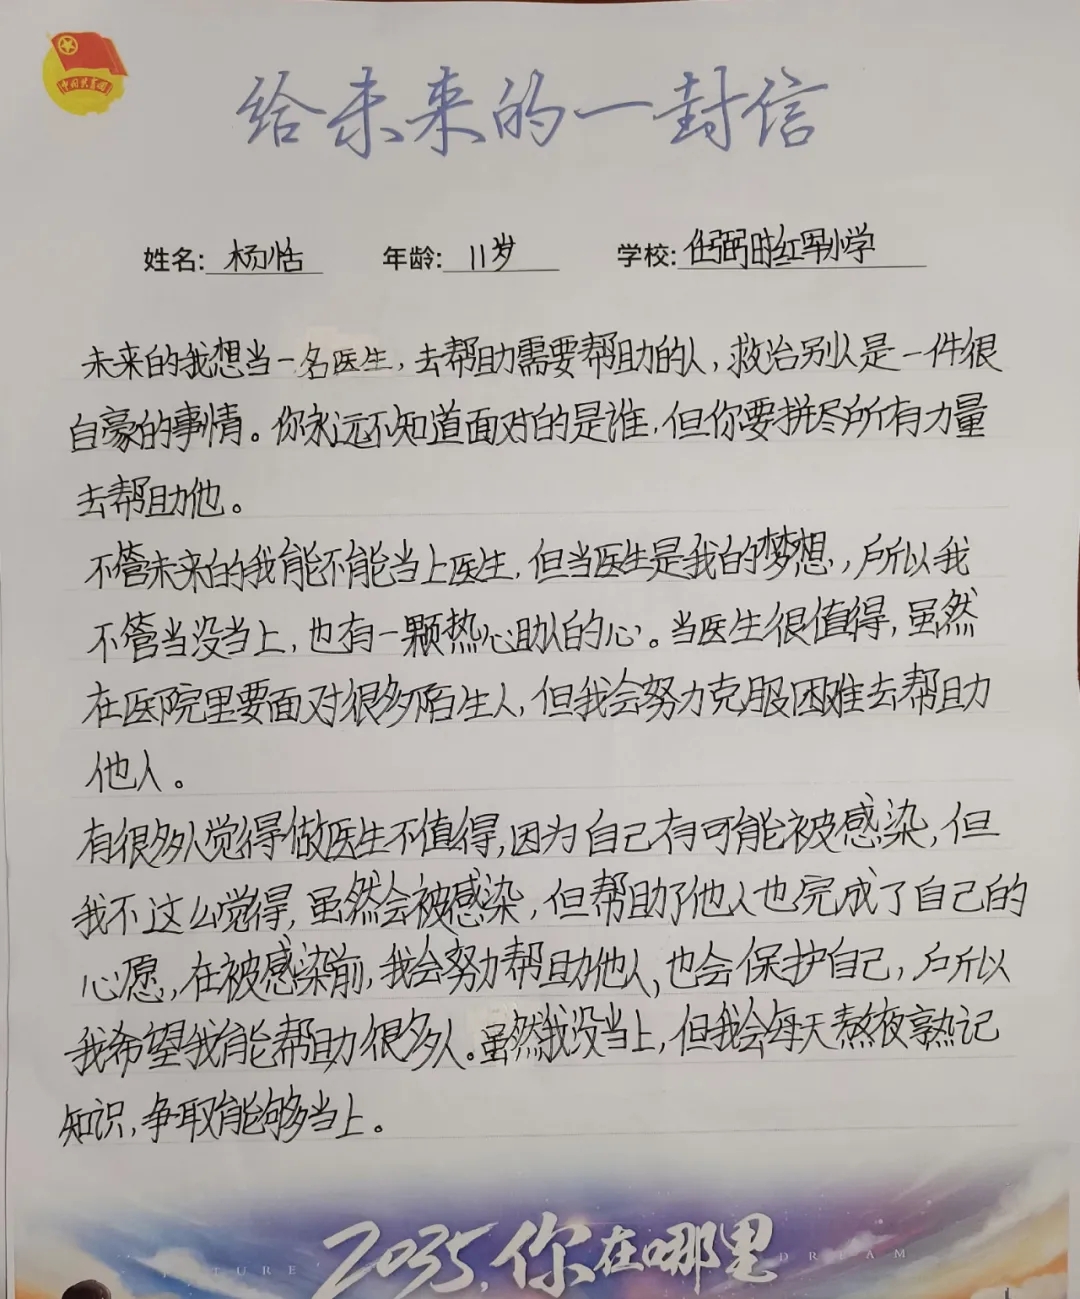 中国共青团
给未来的一封信
姓名: 杨恬 年龄: 11岁 学校: 任弼时红军小学
未来的我想当一名医生，去帮助需要帮助的人，救治别人是一件很
自豪的事情。你永远不知道面对的是谁，但你要拼尽所有力量
去帮助他。
不管未来的我能不能当上医生，但当医生是我的梦想，所以我
不管当没当上，也有一颗热心助人的心。当医生很值得，虽然
在医院里要面对很多陌生人，但我会努力克服困难去帮助
他人。
有很多人觉得做医生不值得，因为自己有可能被感染，但
我不这么觉得，虽然会被感染，但帮助了他人也完成了自己的
心愿，在被感染前，我会努力帮助他人，也会保护自己，所以
我希望我能帮助很多人。虽然我没当上，但我会每天熬夜熟记
知识，争取能够当上。
2035，你在哪里
TURE DREAM